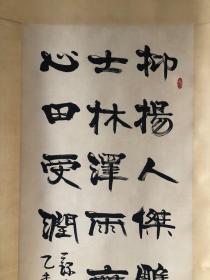 抑揚人傑雕
士林澤雨齊
心田受潤
乙未